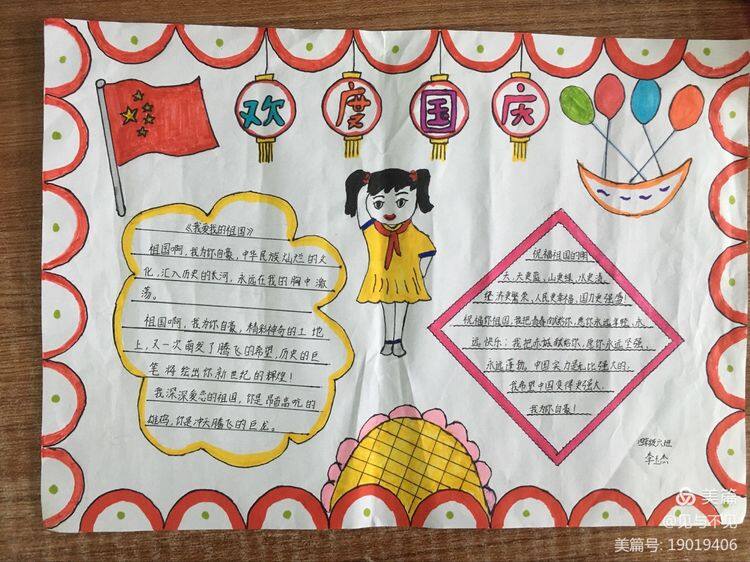 欢度国庆
《我爱我的祖国》
祖国啊,我为你自豪,中华民族灿烂的文
化,汇入历史的长河,永远在我的胸中激
荡。
祖国啊,我为你自豪,精彩神奇的土地
上,又一次萌发了腾飞的希望,历史的巨
笔将绘出你新世纪的辉煌!
我深深爱恋的祖国,你是昂首高吭的
雄鸡,你是冲天腾飞的巨龙。
祝福祖国的明
天,天更蓝,山更绿,水更清,
经济更繁荣,人民更幸福,国力更强盛!
祝福你祖国,我把青春献给你,愿你永远年轻,永
远快乐;我把赤诚献给你,愿你永远坚强,
永远蓬勃。中国实力是无比强大的,
我希望中国变得更强大。
我为你自豪!
四年级六班
李
美篇
@见与不见
美篇号: 19019406